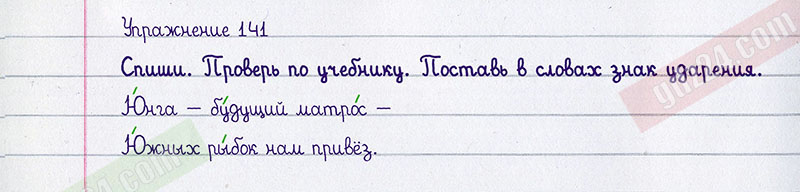 Упражнение 141
Спиши. Проверь по учебнику. Поставь в словах знак ударения.
Ю́нга – бу́дущий матро́с –
Ю́жных ры́бок нам привёз.
gdz24.com
gdz24.com